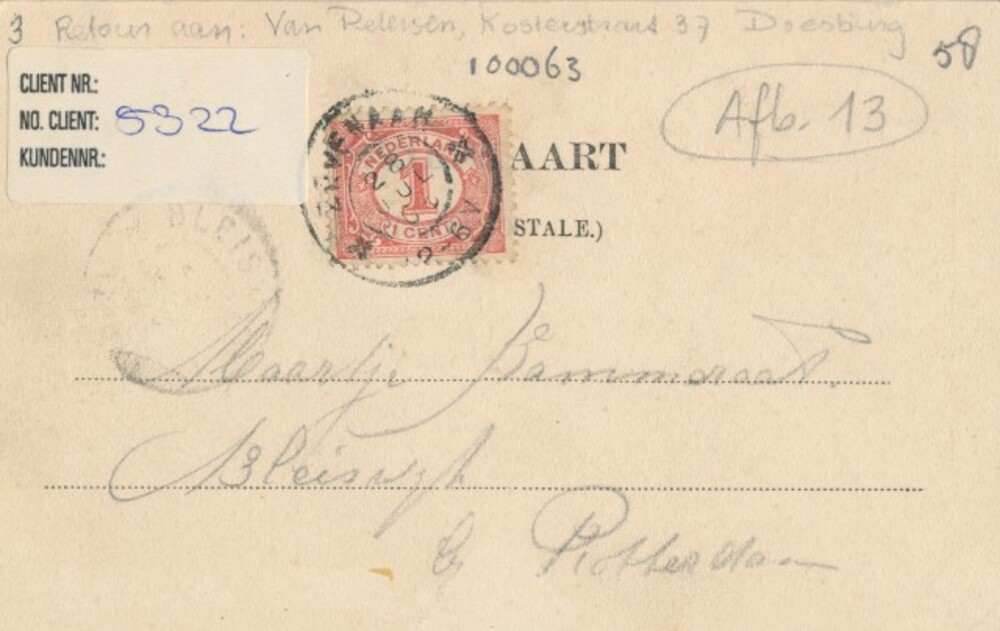 3 Retour aan: Van Petersen, Kosterstraat 37 Doesburg
58
100063
CLIENT NR.:
NO. CLIENT: 5322
KUNDENNR.:
Afb. 13
AART
STALE.)
ZEVENAAR
NEDERLAND
1
1 CENT
BLEIS
Maartje Dammeraat.
Bleiswijk
bij Rotterdam